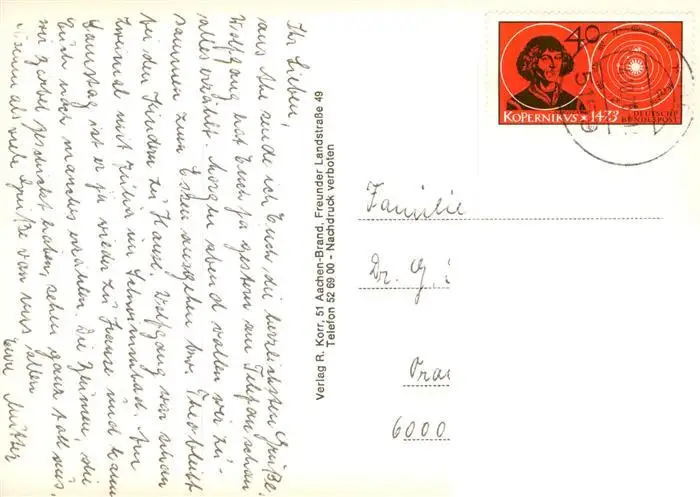 Ihr Lieben,
aus Ahe sende ich Euch die herzlichsten Grüße.
Wolfgang hat Euch ja gestern am Telefon schon
alles erzählt. Morgen abend wollen wir zu-
sammen zum Essen ausgehen bzw. Theo bleibt
bei den Kindern zu Hause. Wolfgang war schon
zweimal mit Julia im Schwimmbad. Am
Samstag ist er ja wieder zu Hause und kann
Euch noch manches erzählen. Die Heimen, die
wir geschickt haben, sehen ganz toll aus.
Nun also viele Grüße von uns allen
Eure Mutter
Verlag R. Korr, 51 Aachen-Brand, Freunder Landstraße 49
Telefon 52 69 00 - Nachdruck verboten
40
KOPERNIKVS ★ 1473
DEUTSCHE
BUNDESPOST
Familie
Dr. G.
6000